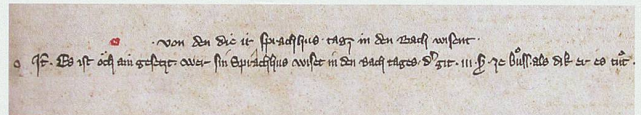 · von den die ir sprachhus · tags in den Bach wisent ·
It. Es ist och ain gesetzt · wer sin Sprachhus wiset in den Bach tages · der git · iii · ß · ze buoss · als dik er es tuot ·